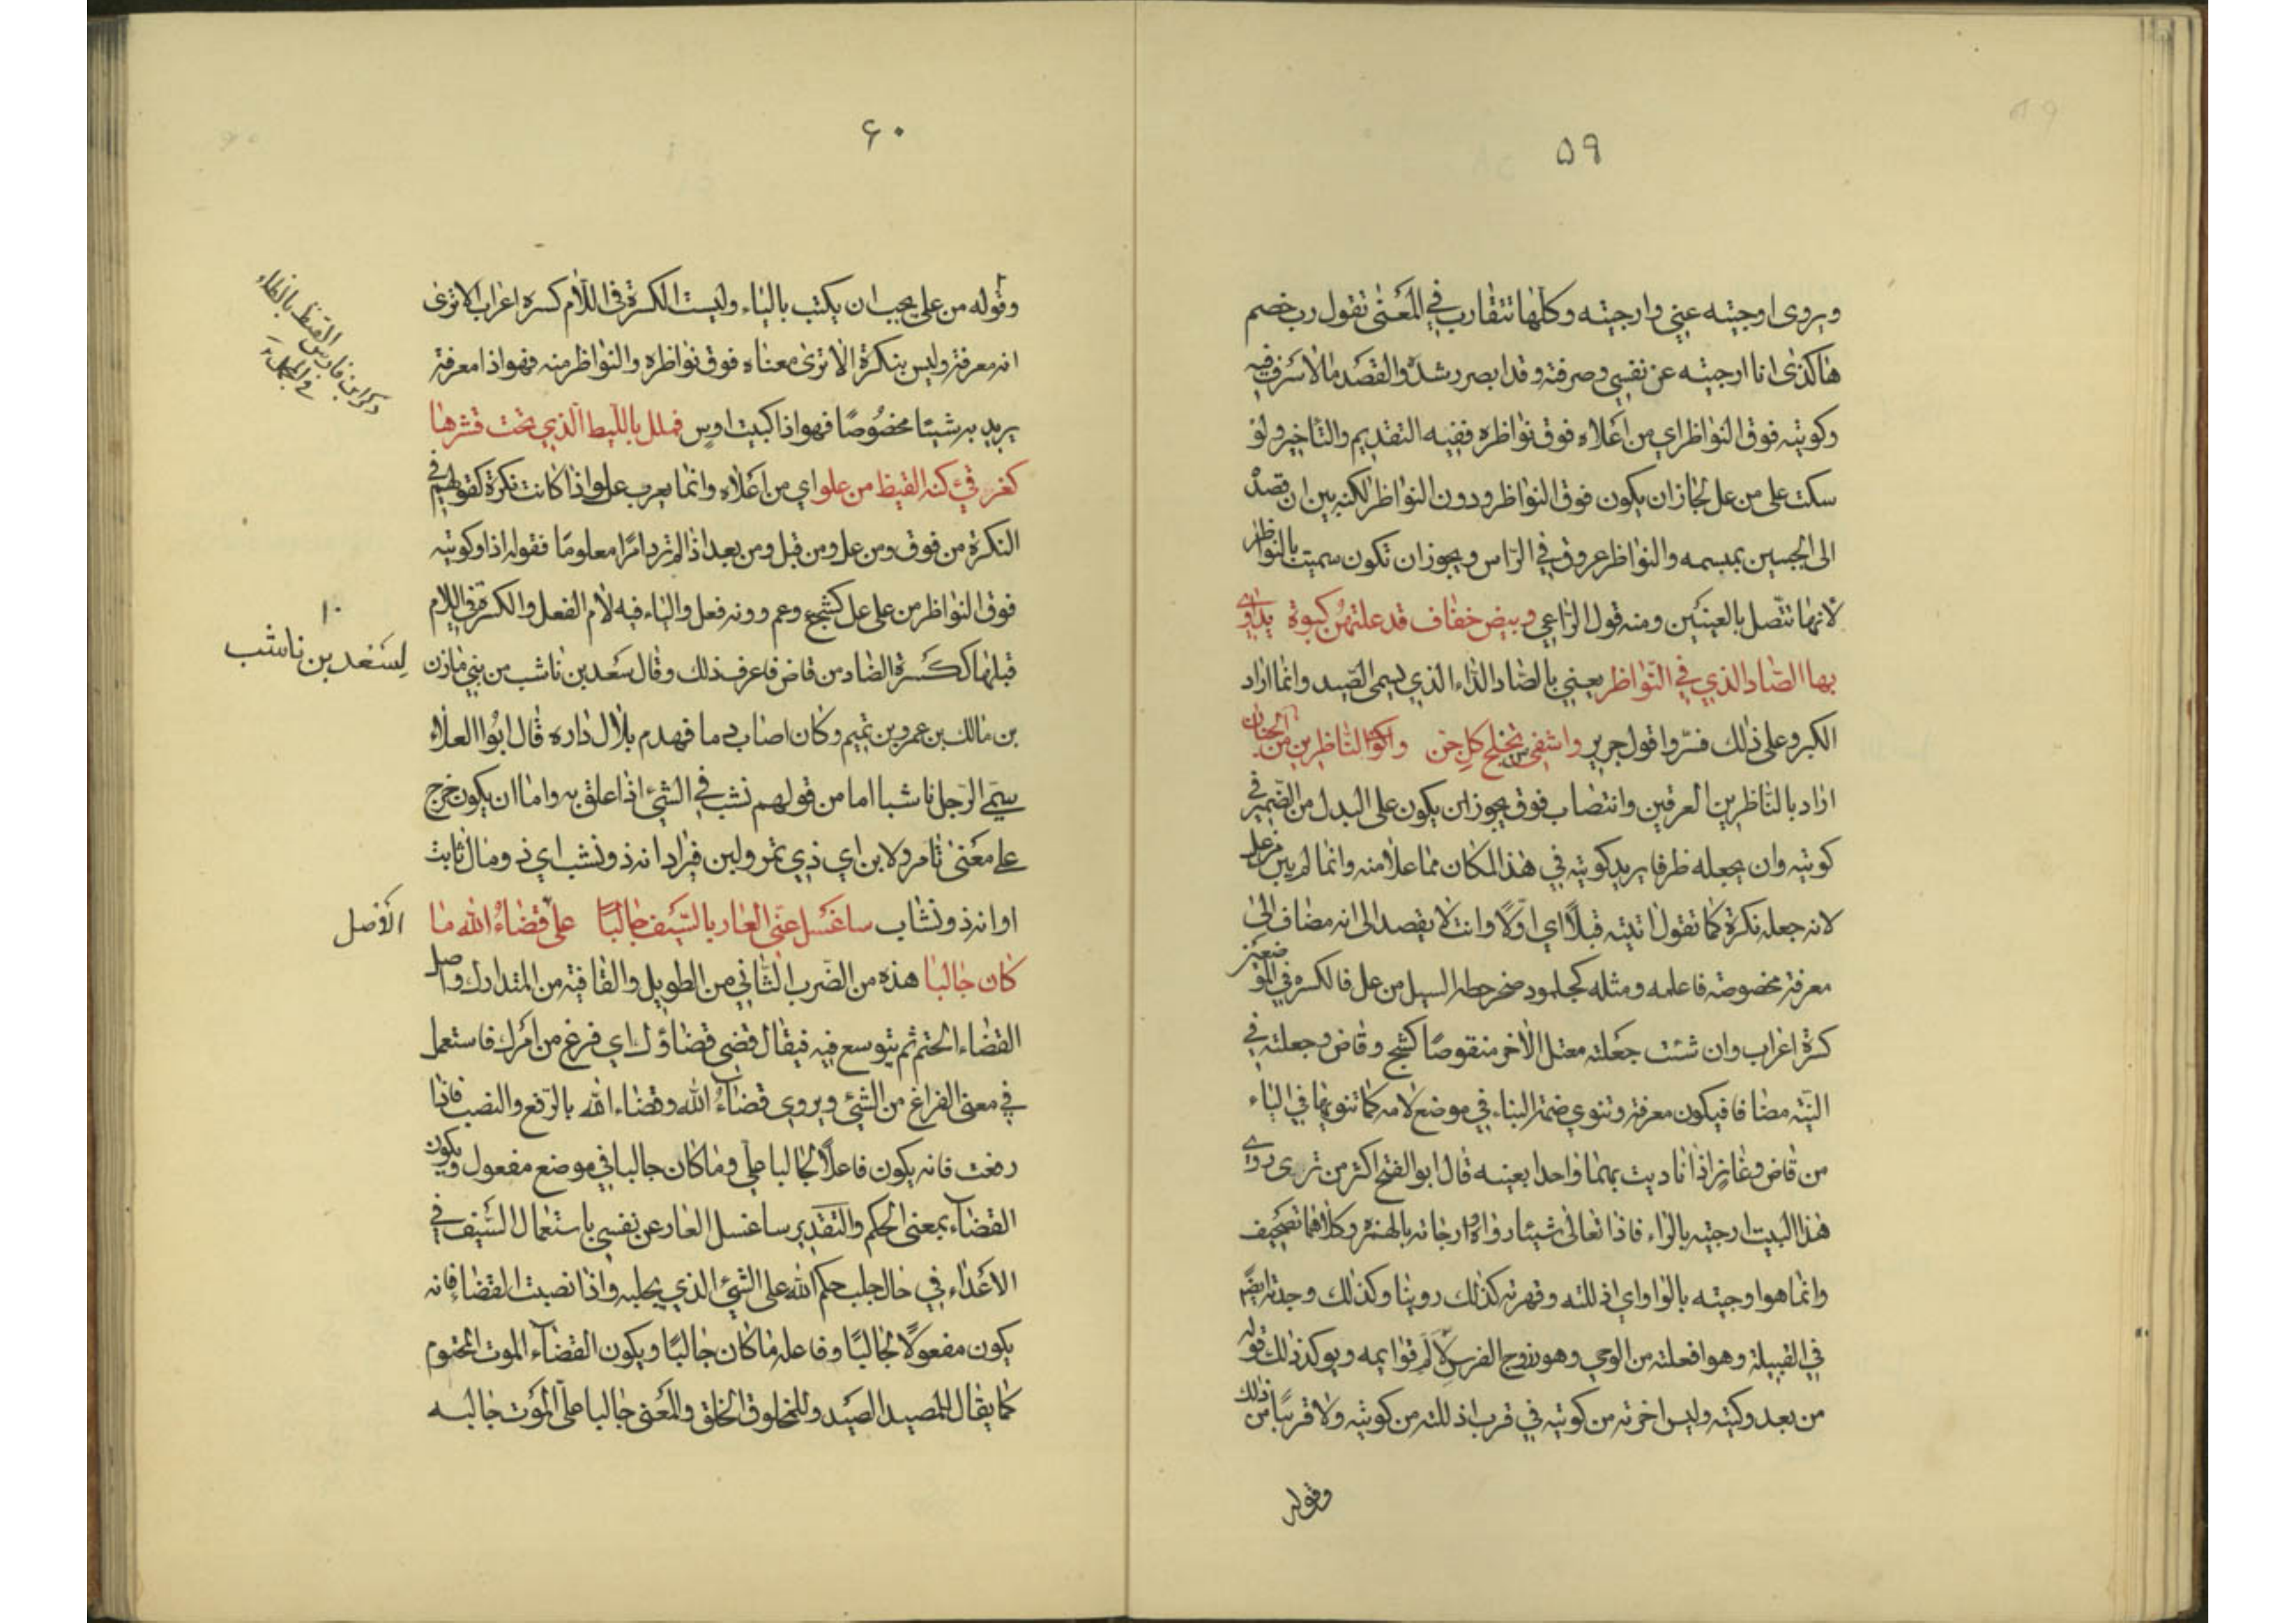 ٥٩
ويروى اوجيته عني وارجيته وكلها تتقارب في المعنى تقول رب خصم
هاكذى انا ارجيته عن نفسي وصرفته وقد ابصر رشده والقصد مالا سرف فيه
وكويته فوق النواظر اي من اعلاه فوق نواظره ففيه التقديم والتاخير ولو
سكت على من عل لجاز ان يكون فوق النواظر ودون النواظر لكنه بين ان قصده
الى الجبين بميسمه والنواظر عروق في الراس ويجوز ان تكون سميت بالنواظر
لانها تتصل بالعينين ومنه قول الراعي وبيض خفاف قد علتهن كبوة يداوى
بها الصاد الذي في النواظر يعني بالصاد الداء الذي يسمى الصيد وانما اراد
الكبر وعلى ذلك فسروا قول جرير واشفي من تخلج كل جن واكوي الناظرين من الخنان
اراد بالناظرين العرقين وانتصاب فوق يجوز ان يكون على البدل من الضمير في
كويته وان يجعله ظرفا يريد كويته في هذا المكان مما علا منه وانما لم يبن من عل
لانه جعله نكرة كما تقول اتيته قبلاً اي اولاً وانت لا يقصد الى انه مضاف الى
معرفة مخصوصة فاعلمه ومثله كجلمود صخر حطه السيل من عل فالكسره في الموضعين
كسرة اعراب وان شئت جعلته معتل الاخر منقوصًا كشج وقاض وجعلته في
النية مضافا فيكون معرفة وتنوي ضمة البناء في موضع لامه كما تنويها في الياء
من قاض وغاز اذا ناديت بهما واحدا بعينه قال ابو الفتح اكثر من ترى روى
هذا البيت ارجيته بالراء فاذا تعالى شيئا رواه وارجاته بالهمزة وكلاهما تصحيف
وانما هو اوجيته بالواو اي اذللته وقهرته كذلك روينا وكذلك وجدته ايضًا
في القبيلة وهو افعلته من الوجى وهو وجى الفرس لالم قوايمه ويوكد ذلك قوله
من بعد وكيته وليس اخرته من كويته في قرب اذللته من كويته ولا قريبًا من ذلك
وقوله
٦٠
وقوله من على يجب ان يكتب بالياء وليست الكسرة في اللام كسره اعراب الا ترى
انه معرفة وليس بنكرة الا ترى معناه فوق نواظره والنواظر منه فهو اذا معرفة
يريد به شيئا مخصوصًا فهو اذا كبيت اوس فملك بالليط الذي تحت قشرها
كغرقئ كنه القيظ من علو اي من اعلاه وانما يعرب علو اذا كانت نكرة كقولهم في
النكرة من فوق ومن عل ومن قبل ومن بعد اذا لم ترد امرًا معلومًا فقوله اذا وكويته
فوق النواظر من على عل كشج وعم ووزنه فعل والياء فيه لام الفعل والكسرة في اللام
قبلها ككسرة الضاد من قاض فاعرف ذلك وقال سعد بن ناشب من بني مازن
بن مالك بن عمرو بن تميم وكان اصاب دما فهدم بلال داره قال ابو العلاء
سمي الرجل ناشبا اما من قولهم نشب في الشئ اذا علق به واما ان يكون خرج
على معنى تامر ولابن اي ذي تمر ولبن فيراد انه ذو نشب اي ذو مال ثابت
او انه ذو نشاب ساغسل عني العار بالسيف جالبًا على قضاء الله ما
كان جالبا هذه من الضرب الثاني من الطويل والقافية من المتدارك واصل
القضاء الحتم ثم يتوسع فيه فيقال قضي قضاؤك اي فرغ من امرك فاستعمل
في معنى الفراغ من الشئ ويروى قضاء الله وقضاء الله بالرفع والنصب فاذا
رفعت فانه يكون فاعلاً لجالبا علي وما كان جالبا في موضع مفعول ويكون
القضاء بمعنى الحكم والتقدير ساغسل العار عن نفسي باستعمال السيف في
الاعداء في حال جلب حكم الله علي الشئ الذي يجلبه واذا نصبت القضاء فانه
يكون مفعولًا لجالبًا وفاعله ما كان جالبًا ويكون القضاء الموت المحتوم
كما يقال للمصيد الصيد وللمخلوق الخلق والمعنى جالبا علي الموت جالبه
ذكر ابن فارس القيظ بالظاء
في المجمل
١٠
لسعد بن ناشب